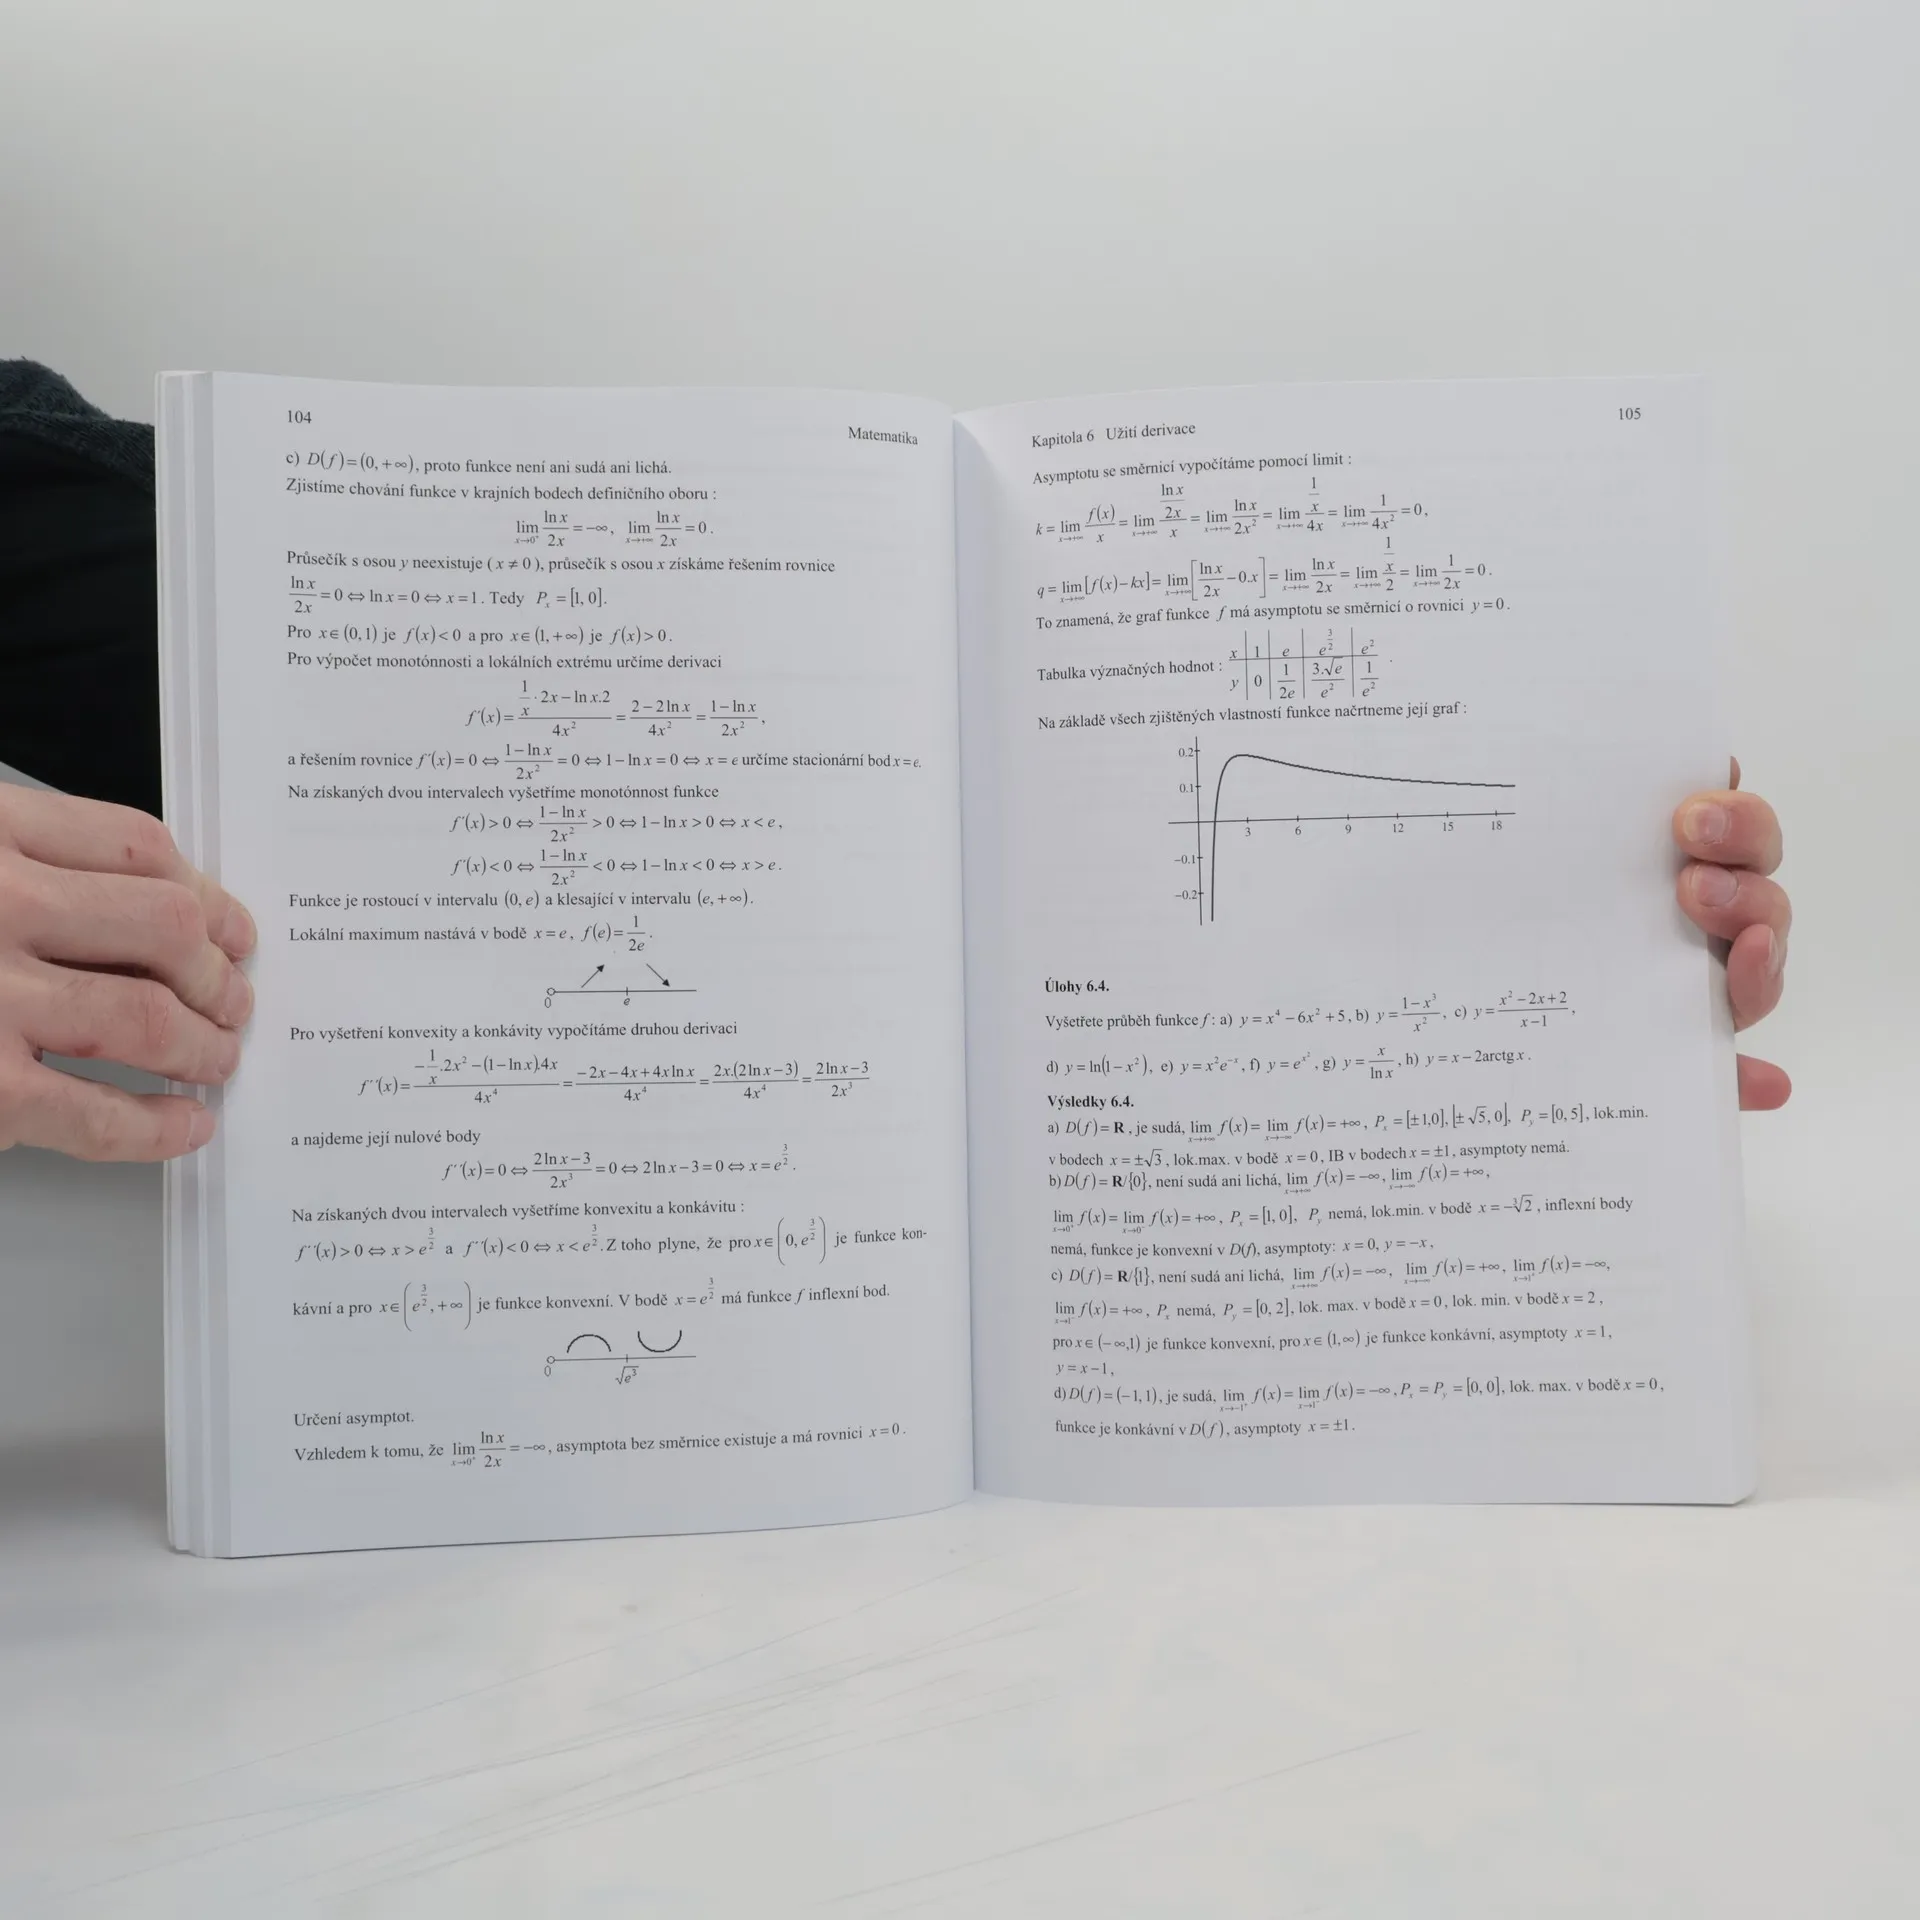 104
Matematika
c) D(f)=(0,+∞), proto funkce není ani sudá ani lichá.
Zjistíme chování funkce v krajních bodech definičního oboru :
lim_{x→0⁺} ln x/2x = −∞, lim_{x→+∞} ln x/2x = 0.
Průsečík s osou y neexistuje (x ≠ 0), průsečík s osou x získáme řešením rovnice
ln x/2x = 0 ⇔ ln x = 0 ⇔ x = 1. Tedy Pₓ = [1, 0].
Pro x∈(0,1) je f(x)<0 a pro x∈(1,+∞) je f(x)>0.
Pro výpočet monotónnosti a lokálních extrému určíme derivaci
f´(x)= (1/x · 2x − ln x.2)/4x² = (2−2 ln x)/4x² = (1−ln x)/2x²,
a řešením rovnice f´(x)=0 ⇔ (1−ln x)/2x² = 0 ⇔ 1−ln x = 0 ⇔ x = e určíme stacionární bod x = e.
Na získaných dvou intervalech vyšetříme monotónnost funkce
f´(x)>0 ⇔ (1−ln x)/2x² > 0 ⇔ 1−ln x > 0 ⇔ x < e,
f´(x)<0 ⇔ (1−ln x)/2x² < 0 ⇔ 1−ln x < 0 ⇔ x > e.
Funkce je rostoucí v intervalu (0, e) a klesající v intervalu (e,+∞).
Lokální maximum nastává v bodě x = e, f(e)= 1/2e.
0 e
Pro vyšetření konvexity a konkávity vypočítáme druhou derivaci
f´´(x)= (−1/x.2x² −(1−ln x).4x)/4x⁴ = (−2x−4x+4x ln x)/4x⁴ = 2x.(2 ln x−3)/4x⁴ = (2 ln x−3)/2x³
a najdeme její nulové body
f´´(x)=0 ⇔ (2 ln x−3)/2x³ = 0 ⇔ 2 ln x−3 = 0 ⇔ x = e^{3/2}.
Na získaných dvou intervalech vyšetříme konvexitu a konkávitu :
f´´(x)>0 ⇔ x > e^{3/2} a f´´(x)<0 ⇔ x < e^{3/2}. Z toho plyne, že pro x∈(0, e^{3/2}) je funkce kon-
kávní a pro x∈(e^{3/2},+∞) je funkce konvexní. V bodě x = e^{3/2} má funkce f inflexní bod.
0 √e³
Určení asymptot.
Vzhledem k tomu, že lim_{x→0⁺} ln x/2x = −∞, asymptota bez směrnice existuje a má rovnici x = 0.
Kapitola 6 Užití derivace
105
Asymptotu se směrnicí vypočítáme pomocí limit :
k = lim_{x→+∞} f(x)/x = lim_{x→+∞} (ln x/2x)/x = lim_{x→+∞} ln x/2x² = lim_{x→+∞} (1/x)/4x = lim_{x→+∞} 1/4x² = 0,
q = lim_{x→+∞}[f(x)−kx] = lim_{x→+∞}[ln x/2x −0.x] = lim_{x→+∞} ln x/2x = lim_{x→+∞} (1/x)/2 = lim_{x→+∞} 1/2x = 0.
To znamená, že graf funkce f má asymptotu se směrnicí o rovnici y = 0.
Tabulka význačných hodnot :
x | 1 | e | e^{3/2} | e²
y | 0 | 1/2e | 3.√e/e² | 1/e²
.
Na základě všech zjištěných vlastností funkce načrtneme její graf :
0.2
0.1
3 6 9 12 15 18
−0.1
−0.2
Úlohy 6.4.
Vyšetřete průběh funkce f : a) y = x⁴ −6x² +5, b) y = (1−x³)/x², c) y = (x² −2x+2)/(x−1),
d) y = ln(1−x²), e) y = x²e^{−x}, f) y = e^{x²}, g) y = x/ln x, h) y = x−2arctg x.
Výsledky 6.4.
a) D(f)= R, je sudá, lim_{x→+∞} f(x)= lim_{x→−∞} f(x)=+∞, Pₓ =[±1,0], [±√5, 0], P_y =[0, 5], lok.min.
v bodech x = ±√3, lok.max. v bodě x = 0, IB v bodech x = ±1, asymptoty nemá.
b) D(f)= R/{0}, není sudá ani lichá, lim_{x→+∞} f(x)=−∞, lim_{x→−∞} f(x)=+∞,
lim_{x→0⁺} f(x)= lim_{x→0⁻} f(x)=+∞, Pₓ =[1, 0], P_y nemá, lok.min. v bodě x = −∛2, inflexní body
nemá, funkce je konvexní v D(f), asymptoty: x = 0, y = −x,
c) D(f)= R/{1}, není sudá ani lichá, lim_{x→+∞} f(x)=−∞, lim_{x→−∞} f(x)=+∞, lim_{x→1⁺} f(x)=−∞,
lim_{x→1⁻} f(x)=+∞, Pₓ nemá, P_y =[0, 2], lok. max. v bodě x = 0, lok. min. v bodě x = 2,
pro x∈(−∞,1) je funkce konvexní, pro x∈(1,∞) je funkce konkávní, asymptoty x = 1,
y = x−1,
d) D(f)=(−1,1), je sudá, lim_{x→−1⁺} f(x)= lim_{x→1⁻} f(x)=−∞, Pₓ = P_y =[0, 0], lok. max. v bodě x = 0,
funkce je konkávní v D(f), asymptoty x = ±1.